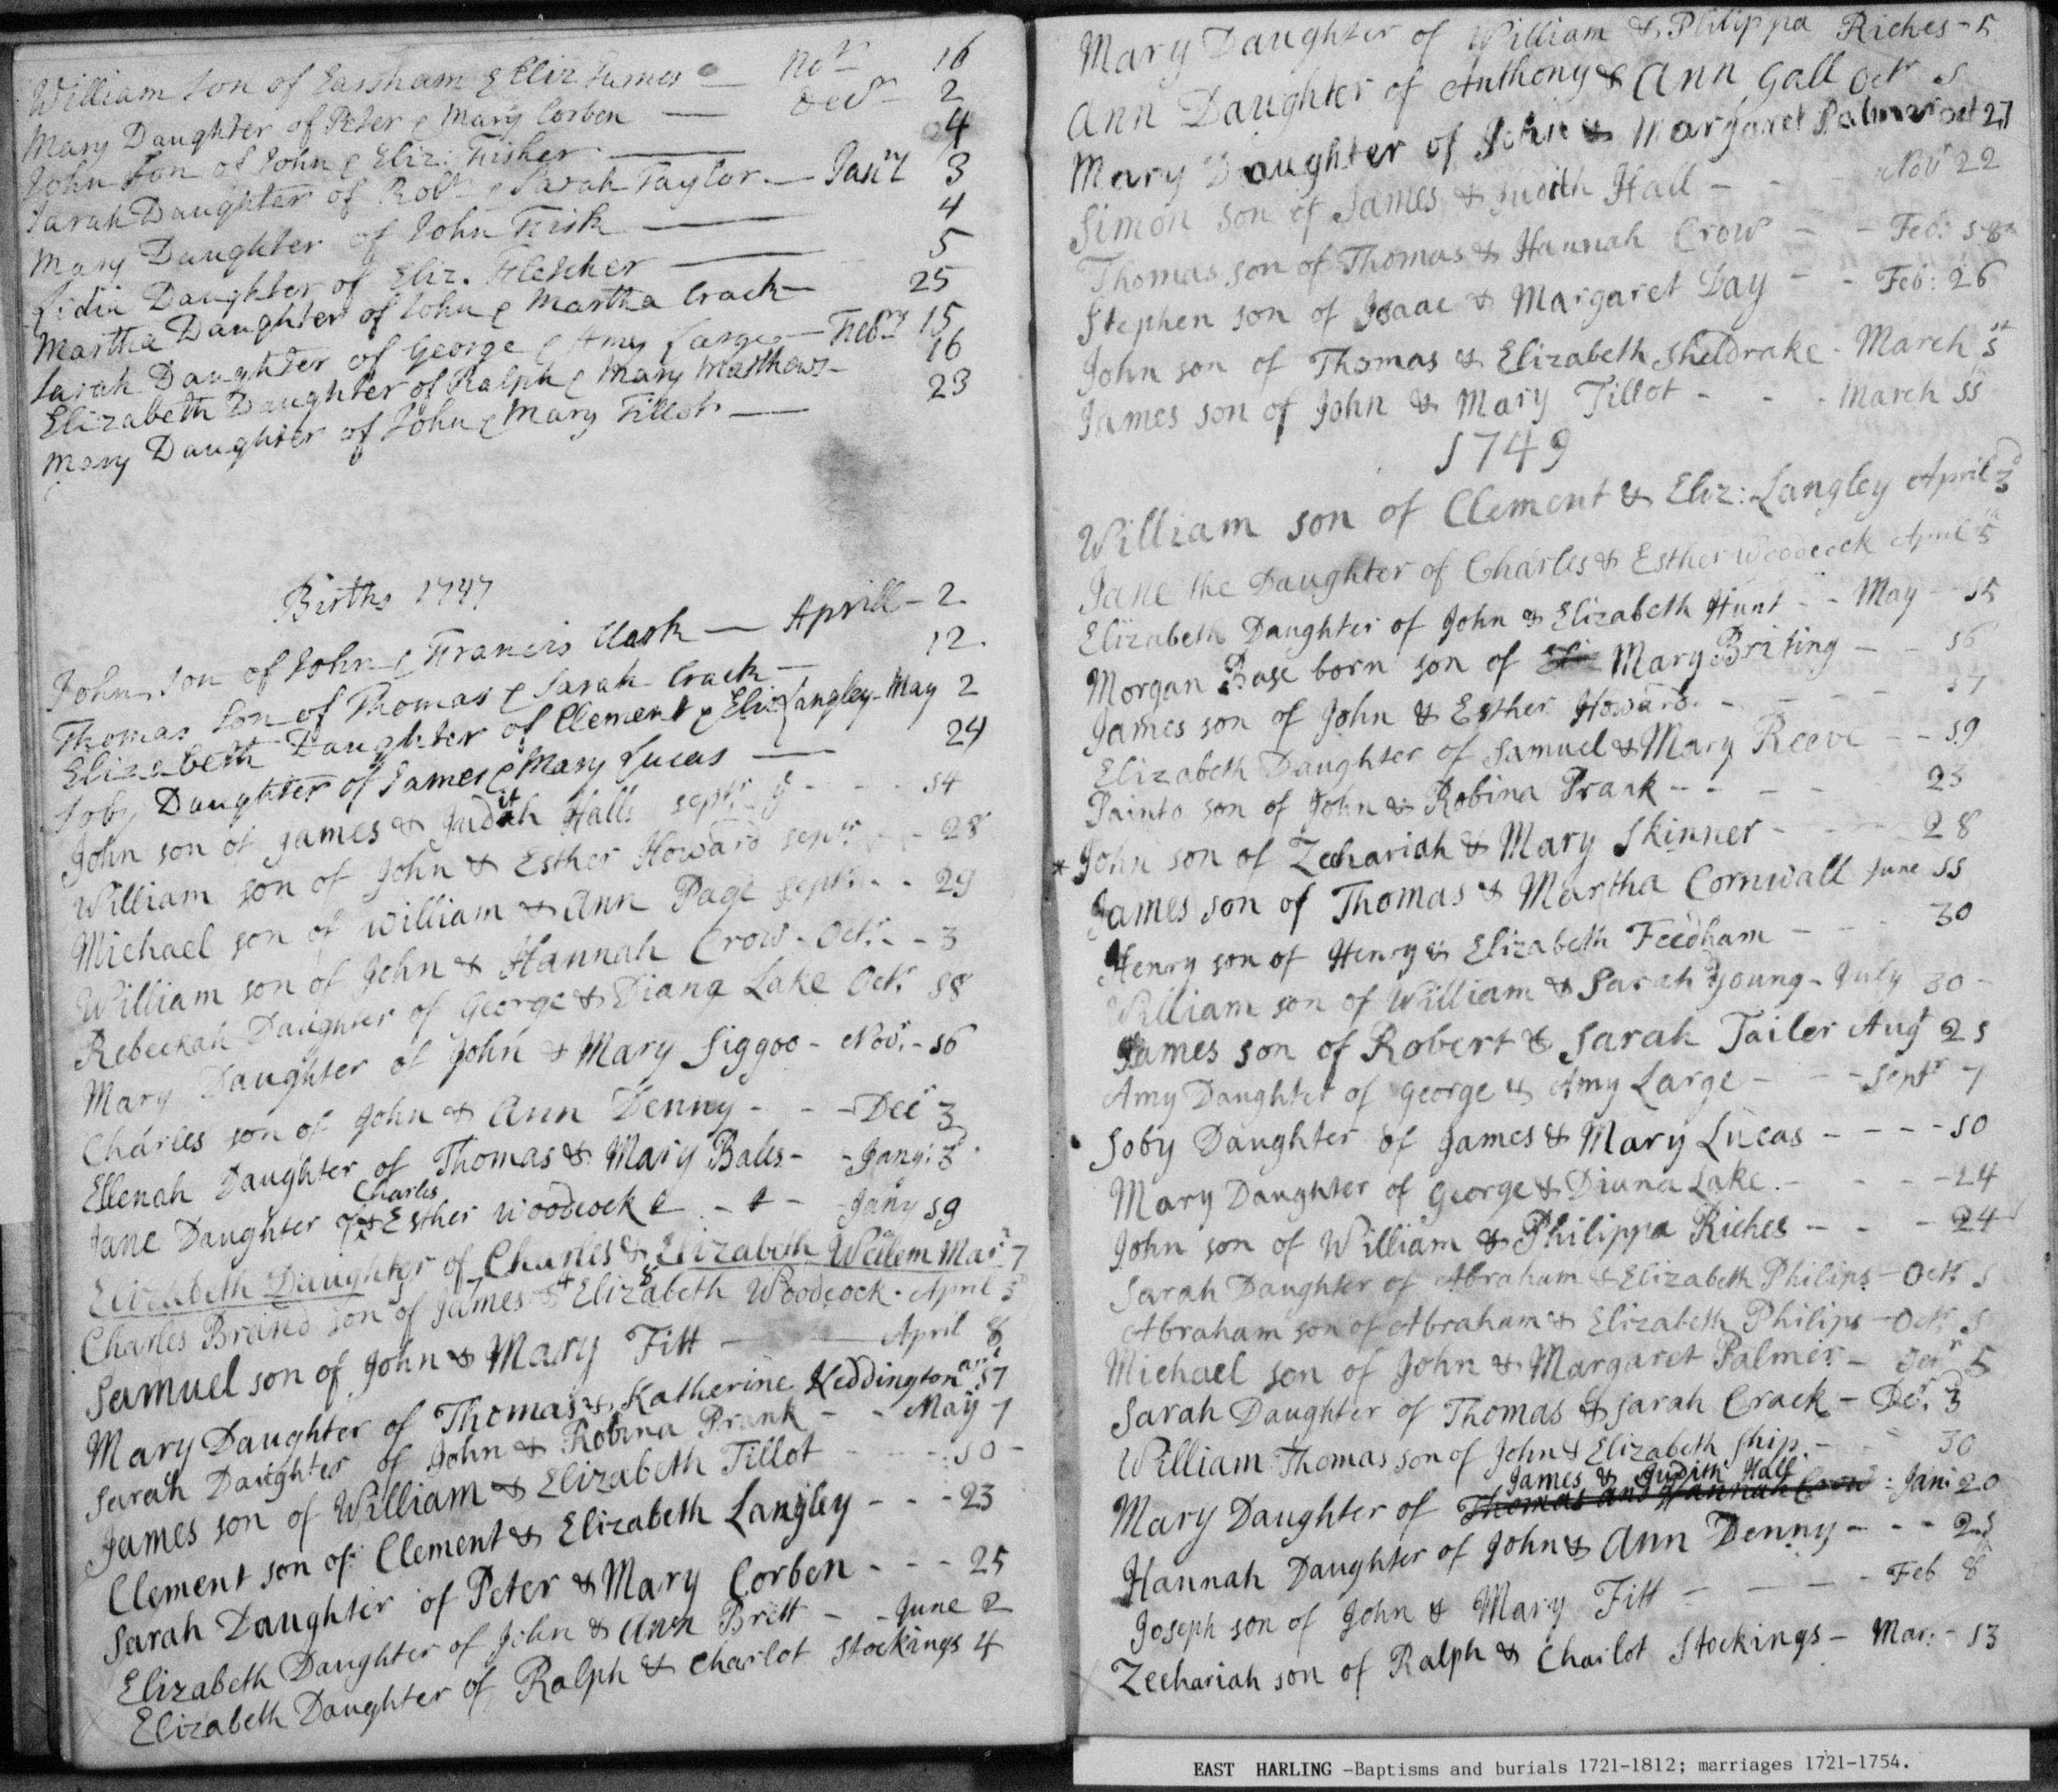 William Son of Earsham & Eliz James — Nov 16
Mary Daughter of Peter & Mary Corben — Decr 2
John Son of John & Eliz: Fisher — 4
Sarah Daughter of Robt & Sarah Taylor — Janry 3
Mary Daughter of John Fisk — 4
Lidia Daughter of Eliz. Fletcher — 5
Martha Daughter of John & Martha Crack — 25
Sarah Daughter of George & Amy Large — Febry 15
Elizabeth Daughter of Ralph & Mary Matthews — 16
Mary Daughter of John & Mary Tillot — 23
Births 1747
John Son of John & Francis Clark — Aprill — 2
Thomas Son of Thomas & Sarah Crack — 12
Elizabeth Daughter of Clement & Eliz Langley — May 2
Soby Daughter of James & Mary Lucas — 24
John son of James & Judith Halls septr ye - - - 14
William son of John & Esther Howard sepr - - 28
Michael son of William & Ann Page septr - - 29
William son of John & Hannah Crow - Octr - - 3
Rebeckah Daughter of George & Diana Lake Octr 18
Mary Daughter of John & Mary Siggoo - Novr - 16
Charles son of John & Ann Denny - - - Decr 3
Ellenah Daughter of Thomas & Mary Bales - - Jany: 3d
Jane Daughter of Charles & Esther Woodcock - - - Jany 19
Elizabeth Daughter of Charles & Elizabeth Wellem Mar 7
Charles Brand son of James & Elizabeth Woodcock - April 3d
Samuel son of John & Mary Fitt — April 8
Mary Daughter of Thomas & Katherine Keddington 17
Sarah Daughter of John & Robina Prank - - May 7
James son of William & Elizabeth Tillot - - - 10 -
Clement son of Clement & Elizabeth Langley - - - 23
Sarah Daughter of Peter & Mary Corben - - - 25
Elizabeth Daughter of John & Ann Brett - - June 2
Elizabeth Daughter of Ralph & Charlot Stockings 4
Mary Daughter of William & Philippa Riches - 5
Ann Daughter of Anthony & Ann Gall Octr 1
Mary Daughter of John & Margaret Palmer Oct 27
Simon son of James & Judith Hall - - - Novr 22
Thomas son of Thomas & Hannah Crow - - Feb: 18
Stephen son of Isaac & Margaret Day - - Feb: 26
John son of Thomas & Elizabeth Sheldrake - March 1st
James son of John & Mary Tillot - - - March 11
1749
William son of Clement & Eliz: Langley April 3d
Jane the Daughter of Charles & Esther Woodcock April 5
Elizabeth Daughter of John & Elizabeth Hunt - - May - 15
Morgan Base born son of Mary Briting - - 16
James son of John & Esther Howard - - - - 17
Elizabeth Daughter of Samuel & Mary Reeve - - 19
Painto son of John & Robina Prank - - - - 23
* John son of Zechariah & Mary Skinner - - - 28
James son of Thomas & Martha Cornwall June 11
Henry son of Henry & Elizabeth Feedham - - - 30
William son of William & Sarah Young - July 30 -
James son of Robert & Sarah Tailer Augt 21
Amy Daughter of George & Amy Large - - - Septr 7
Soby Daughter of James & Mary Lucas - - - - 10
Mary Daughter of George & Diana Lake - - - - 24
John son of William & Philippa Riches - - - 24
Sarah Daughter of Abraham & Elizabeth Philips - Octr 1
Abraham son of Abraham & Elizabeth Philips - Octr 1
Michael son of John & Margaret Palmer - Octr 5
Sarah Daughter of Thomas & Sarah Crack - Decr 3
William Thomas son of John & Elizabeth Ship - - - 30
James & Judith Hall
Mary Daughter of Thomas and Hannah Crow : Jan: 20
Hannah Daughter of John & Ann Denny - - - 21
Joseph son of John & Mary Fitt - - - - Feb 8
Zechariah son of Ralph & Charlot Stockings - Mar: - 13
EAST HARLING -Baptisms and burials 1721-1812; marriages 1721-1754.